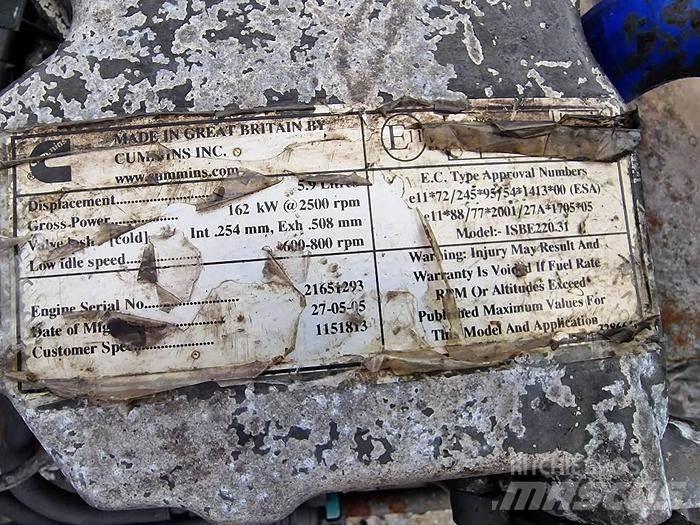 Cummins
MADE IN GREAT BRITAIN BY
CUMMINS INC.
www.cummins.com
Displacement 5.9 Litres
Gross Power 162 kW @ 2500 rpm
Valve lash [cold] Int .254 mm, Exh .508 mm
Low idle speed 600-800 rpm
Engine Serial No. 21651293
Date of Mfg 27-05-05
Customer Spec 1151813
E11
E.C. Type Approval Numbers
e11*72/245*95/54*1413*00 (ESA)
e11*88/77*2001/27A*1705*05
Model:- ISBE220.31
Warning: Injury May Result And
Warranty Is Voided If Fuel Rate
RPM Or Altitudes Exceed
Published Maximum Values For
This Model And Application
MASCUS